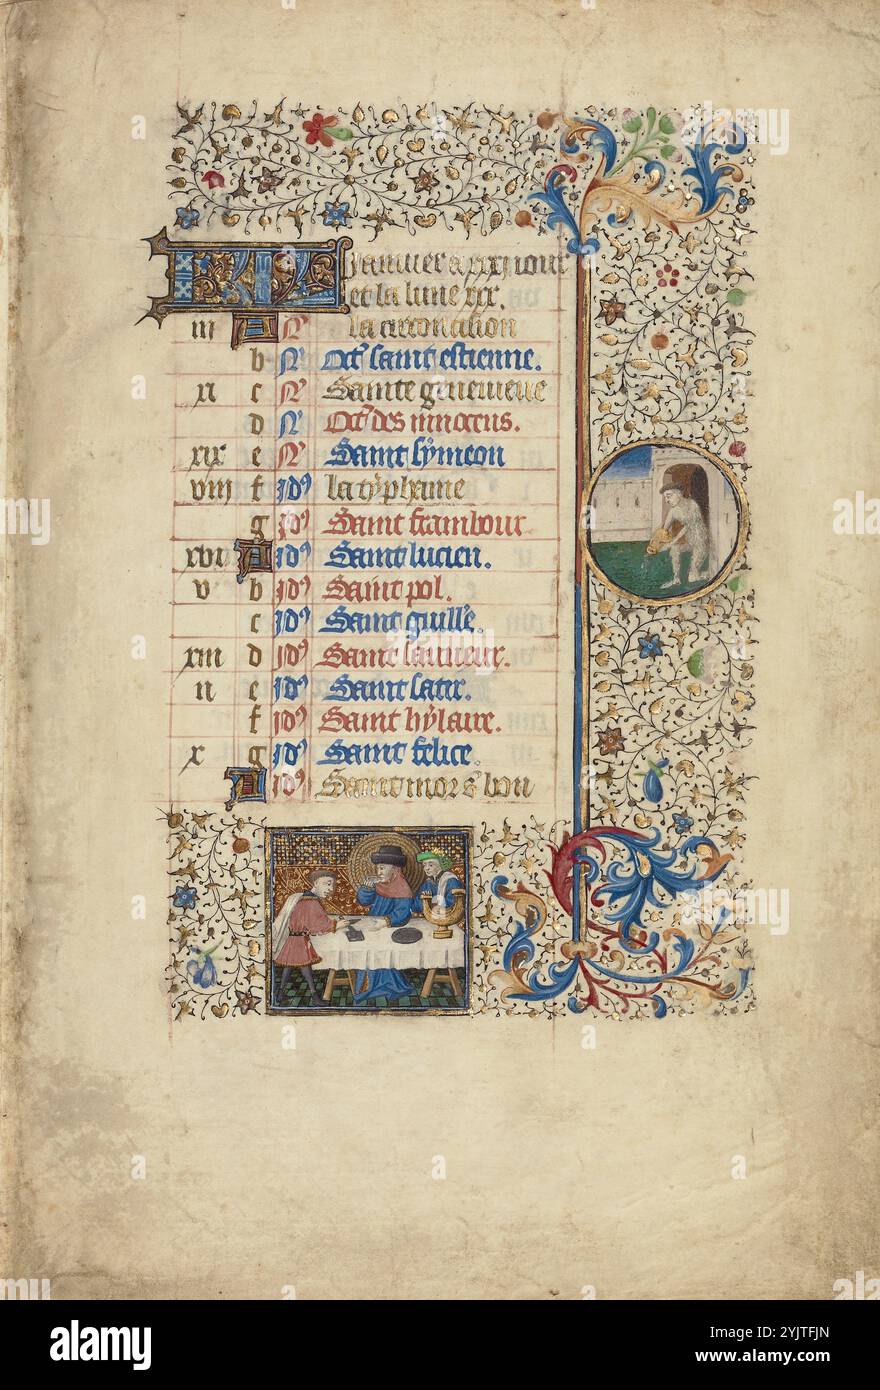 KL Januier a xxxj iour
et la lune xxx.
iii A N La circoncision
b N Oct' saint estienne.
xi c N Sainte geneuieue
d N Oct' des innocens.
xix e N Saint symeon
viii f jd9 La typhaine
g jd9 Saint frambour
xvi A jd9 Saint lucien.
v b jd9 Saint pol.
c jd9 Saint guille.
xiii d jd9 Saint sauueur.
ii e jd9 Saint satir.
f jd9 Saint hylaire.
x g jd9 Saint felice.
A jd9 Saint mor s' bon
alamy
Image ID: 2YJTFJN
www.alamy.com